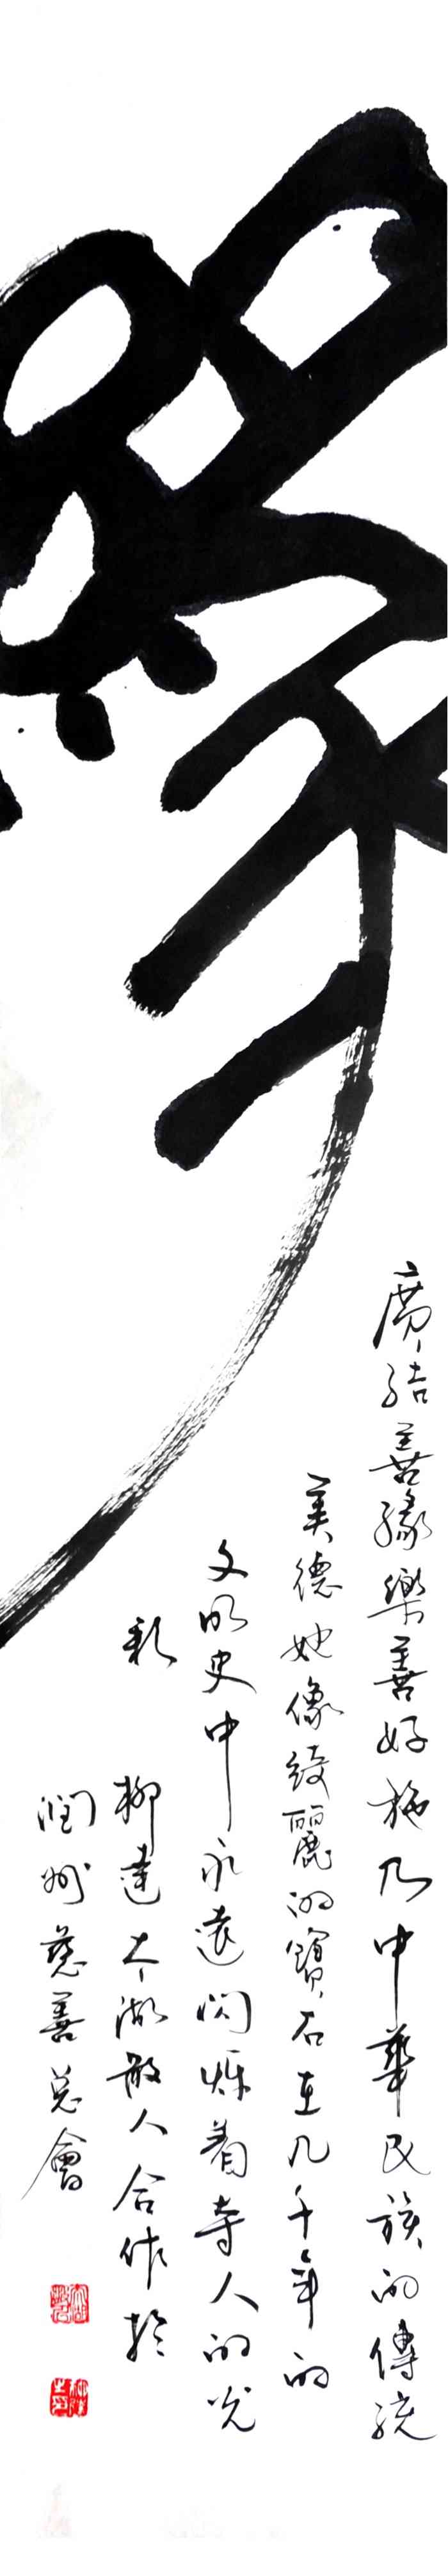 廣结善緣樂善好施乃中華民族的傳统
美德她像綺麗的寶石在几千年的
文明史中永遠闪烁着夺人的光
彩
柳達太湖散人合作於
润州慈善总會